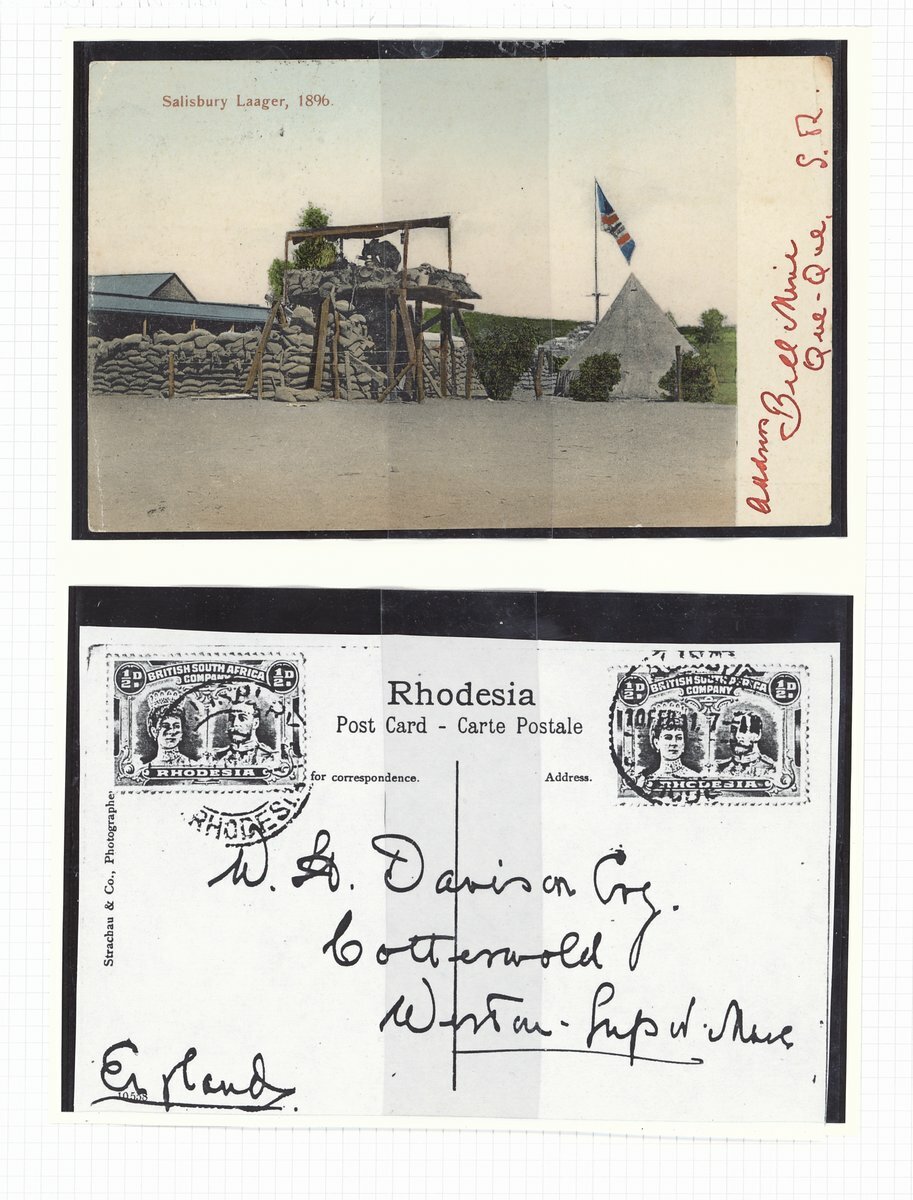 Salisbury Laager, 1896.
Address
Bell Mine
Que-Que,
S. R.
½D. BRITISH SOUTH AFRICA COMPANY ½D.
RHODESIA
RHODESIA
Rhodesia
Post Card - Carte Postale
½D. BRITISH SOUTH AFRICA COMPANY ½D.
RHODESIA
10 FEB 11. 7 - AM
for correspondence.
Address.
Strachau & Co., Photographe
W. H. Davison Esq.
Cotterwold
Weston-Sup'r-Mare
England.